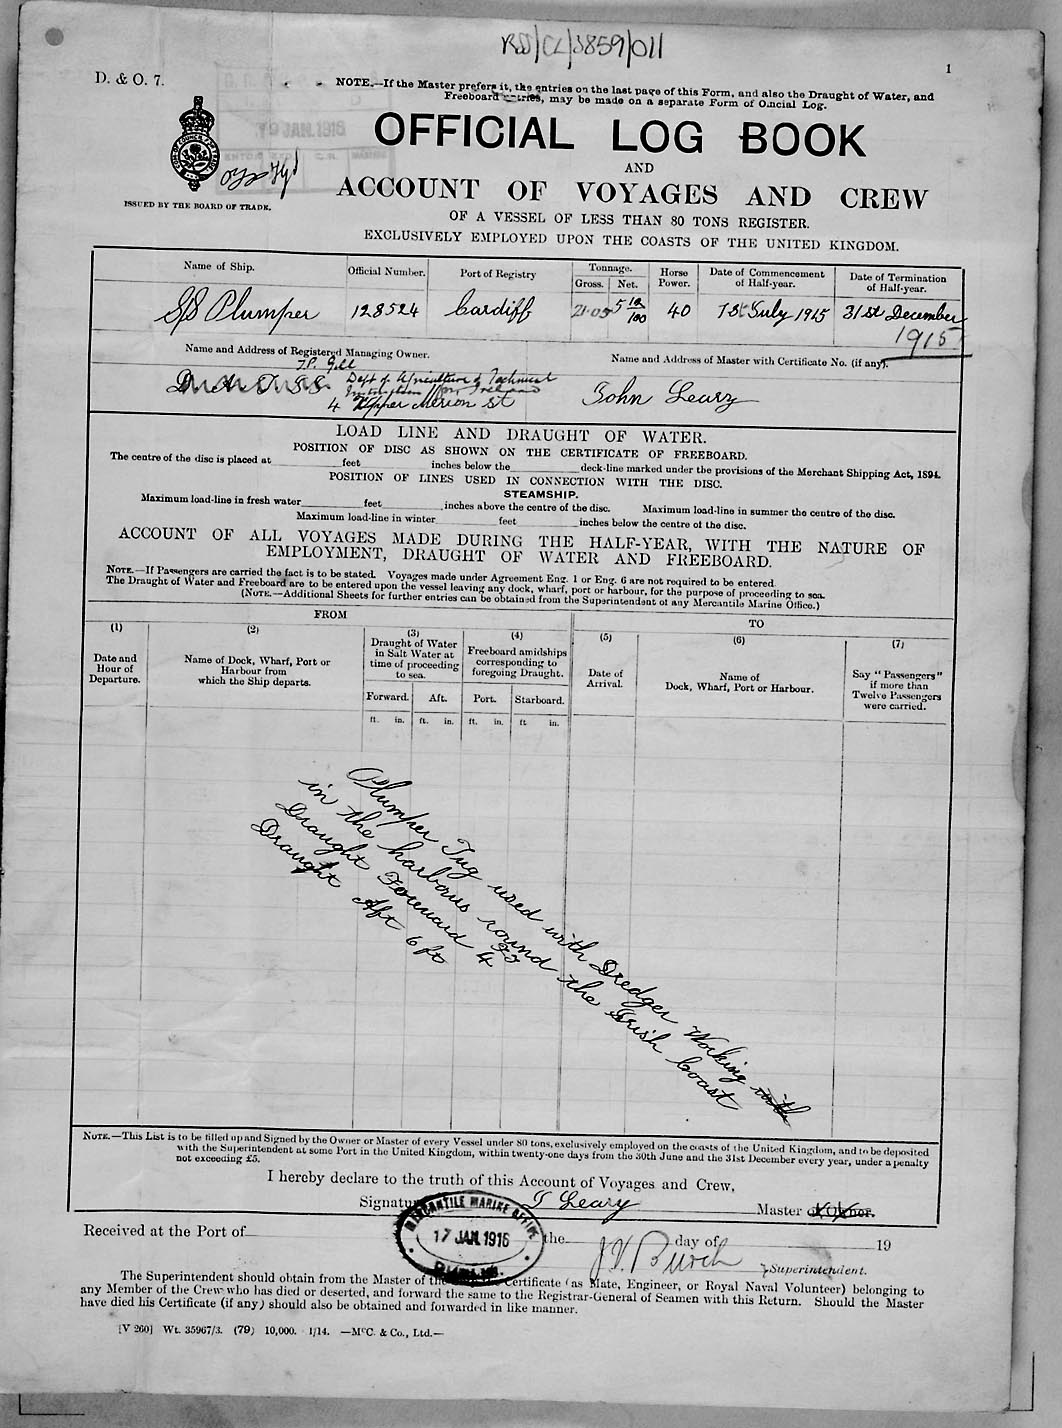 RSS/CL/3859/011
1
D. & O. 7.
NOTE.—If the Master prefers it, the entries on the last page of this Form, and also the Draught of Water, and
Freeboard entries, may be made on a separate Form of Official Log.
19 JAN. 1916
OFFICIAL LOG BOOK
AND
ACCOUNT OF VOYAGES AND CREW
ISSUED BY THE BOARD OF TRADE.
OF A VESSEL OF LESS THAN 80 TONS REGISTER.
EXCLUSIVELY EMPLOYED UPON THE COASTS OF THE UNITED KINGDOM.
Name of Ship. Official Number. Port of Registry Tonnage. Gross. Net. Horse Power. Date of Commencement of Half-year. Date of Termination of Half-year.
S/S Plumper 128524 Cardiff 21.05 5 12/100 40 1st July 1915 31st December 1915
Name and Address of Registered Managing Owner. Name and Address of Master with Certificate No. (if any).
T.P. Gill
Dept of Agriculture & Technical
Instruction for Ireland
4 Upper Merion St John Leary
LOAD LINE AND DRAUGHT OF WATER.
POSITION OF DISC AS SHOWN ON THE CERTIFICATE OF FREEBOARD.
The centre of the disc is placed at feet inches below the deck-line marked under the provisions of the Merchant Shipping Act, 1894.
POSITION OF LINES USED IN CONNECTION WITH THE DISC.
STEAMSHIP.
Maximum load-line in fresh water feet inches above the centre of the disc. Maximum load-line in summer the centre of the disc.
Maximum load-line in winter feet inches below the centre of the disc.
ACCOUNT OF ALL VOYAGES MADE DURING THE HALF-YEAR, WITH THE NATURE OF
EMPLOYMENT, DRAUGHT OF WATER AND FREEBOARD.
NOTE.—If Passengers are carried the fact is to be stated. Voyages made under Agreement Eng. 1 or Eng. 6 are not required to be entered.
The Draught of Water and Freeboard are to be entered upon the vessel leaving any dock, wharf, port or harbour, for the purpose of proceeding to sea.
(NOTE.—Additional Sheets for further entries can be obtained from the Superintendent of any Mercantile Marine Office.)
FROM TO
(1) (2) (3) (4) (5) (6) (7)
Date and Hour of Departure.
Name of Dock, Wharf, Port or Harbour from which the Ship departs.
Draught of Water in Salt Water at time of proceeding to sea.
Freeboard amidships corresponding to foregoing Draught.
Date of Arrival.
Name of Dock, Wharf, Port or Harbour.
Say "Passengers" if more than Twelve Passengers were carried.
Forward. Aft. Port. Starboard.
ft. in. ft. in. ft. in. ft in.
Plumper Tug used with Dredger Working with
in the harbours round the Irish Coast
Draught Foreward 4 ft
Draught Aft 6 ft
NOTE.—This List is to be filled up and Signed by the Owner or Master of every Vessel under 80 tons, exclusively employed on the coasts of the United Kingdom, and to be deposited
with the Superintendent at some Port in the United Kingdom, within twenty-one days from the 30th June and the 31st December every year, under a penalty
not exceeding £5.
I hereby declare to the truth of this Account of Voyages and Crew,
Signature J Leary Master or Owner.
MERCANTILE MARINE OFFICE
17 JAN. 1916
DUBLIN.
Received at the Port of the day of 19
J V Burch Superintendent.
The Superintendent should obtain from the Master of the Certificate (as Mate, Engineer, or Royal Naval Volunteer) belonging to
any Member of the Crew who has died or deserted, and forward the same to the Registrar-General of Seamen with this Return. Should the Master
have died his Certificate (if any) should also be obtained and forwarded in like manner.
[V 260] Wt. 35967/3. (79) 10,000. 1/14. —McC. & Co., Ltd.—